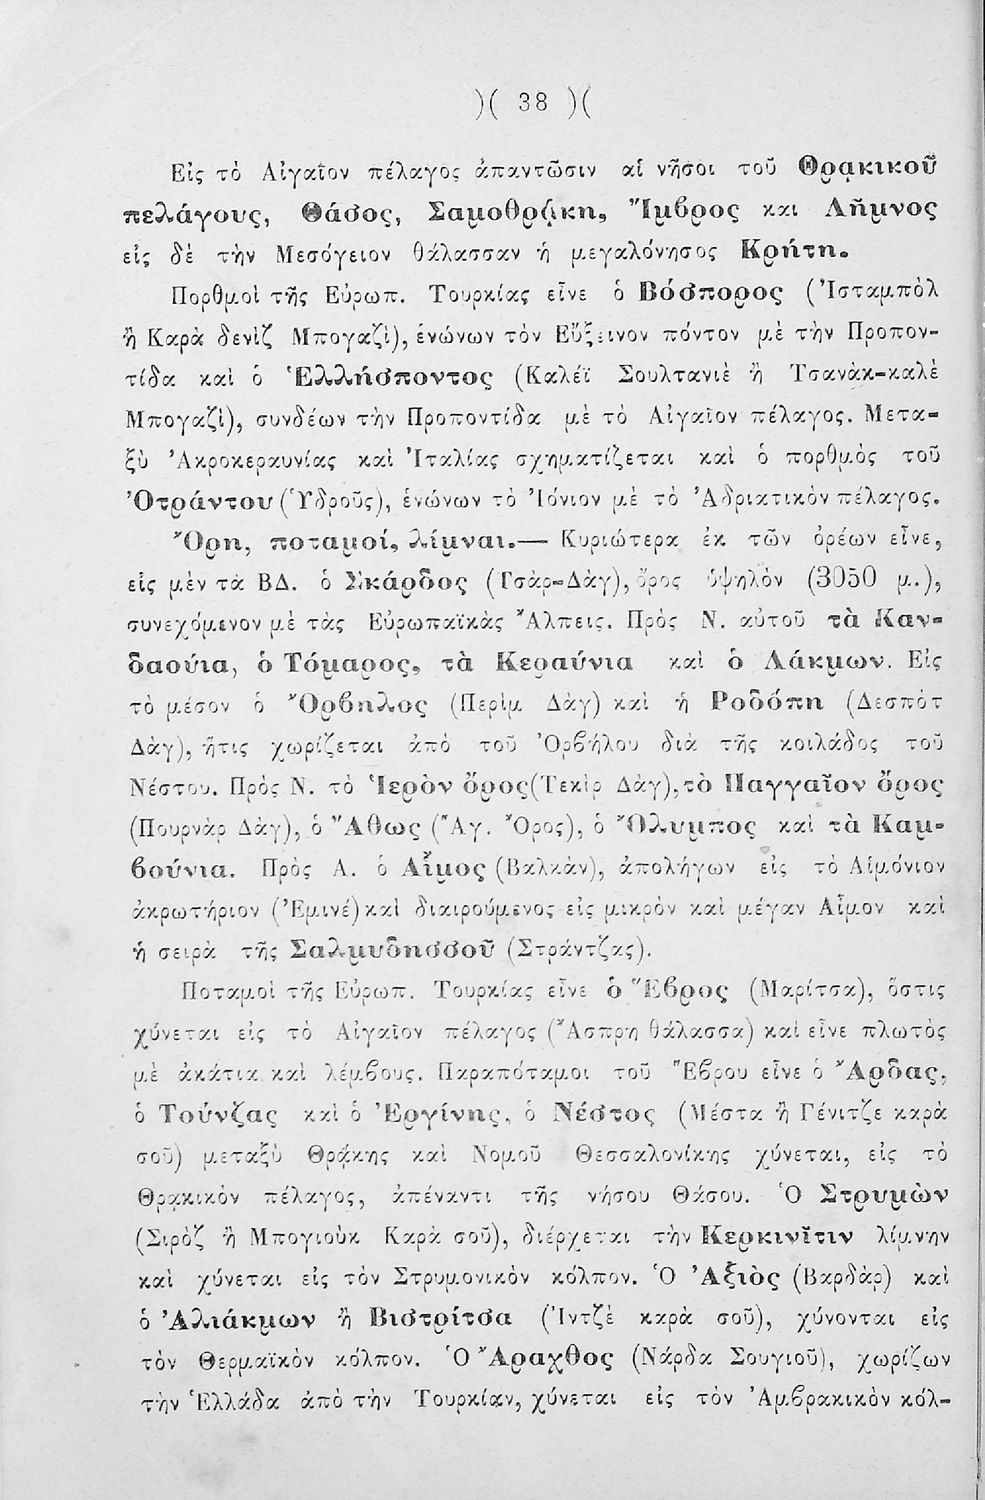 )( 38 )(
Εἰς τὸ Αἰγαῖον πέλαγος ἀπαντῶσιν αἱ νῆσοι τοῦ Θρᾳκικοῦ
πελάγους, Θάσος, Σαμοθρᾴκη, Ἴμβρος και Λῆμνος
εἰς δὲ τὴν Μεσόγειον θάλασσαν ἡ μεγαλόνησος Κρήτη.
Πορθμοὶ τῆς Εὐρωπ. Τουρκίας εἶνε ὁ Βόσπορος (Ἰσταμπὸλ
ἢ Καρὰ δενὶζ Μπογαζὶ), ἑνώνων τὸν Εὔξεινον πόντον μὲ τὴν Προπον-
τίδα καὶ ὁ Ἑλλήσποντος (Καλέϊ Σουλτανιὲ ἢ Τσανὰκ-καλὲ
Μπογαζὶ), συνδέων τὴν Προποντίδα μὲ τὸ Αἰγαῖον πέλαγος. Μετα-
ξὺ Ἀκροκεραυνίας καὶ Ἰταλίας σχηματίζεται καὶ ὁ πορθμὸς τοῦ
Ὀτράντου (Ὑδροῦς), ἑνώνων τὸ Ἰόνιον μὲ τὸ Ἀδριατικὸν πέλαγος.
Ὄρη, ποταμοί, λίμναι.— Κυριώτερα ἐκ τῶν ὀρέων εἶνε,
εἰς μὲν τὰ ΒΔ. ὁ Σκάρδος (Τσὰρ-Δὰγ), ὄρος ὑψηλὸν (3050 μ.),
συνεχόμενον μὲ τὰς Εὐρωπαϊκὰς Ἄλπεις. Πρὸς Ν. αὐτοῦ τὰ Καν-
δαούια, ὁ Τόμαρος, τὰ Κεραύνια καὶ ὁ Λάκμων. Εἰς
τὸ μέσον ὁ Ὄρβηλος (Περὶμ Δὰγ) καὶ ἡ Ροδόπη (Δεσπὸτ
Δὰγ), ἥτις χωρίζεται ἀπὸ τοῦ Ὀρβήλου διὰ τῆς κοιλάδος τοῦ
Νέστου. Πρὸς Ν. τὸ Ἱερὸν ὄρος (Τεκὶρ Δὰγ), τὸ Παγγαῖον ὄρος
(Πουρνὰρ Δὰγ), ὁ Ἄθως (Ἅγ. Ὄρος), ὁ Ὄλυμπος καὶ τὰ Καμ-
βούνια. Πρὸς Α. ὁ Αἷμος (Βαλκὰν), ἀπολήγων εἰς τὸ Αἱμόνιον
ἀκρωτήριον (Ἐμινέ) καὶ διαιρούμενος εἰς μικρὸν καὶ μέγαν Αἷμον καὶ
ἡ σειρὰ τῆς Σαλμυδησσοῦ (Στράντζας).
Ποταμοὶ τῆς Εὐρωπ. Τουρκίας εἶνε ὁ Ἕβρος (Μαρίτσα), ὅστις
χύνεται εἰς τὸ Αἰγαῖον πέλαγος (Ἄσπρη θάλασσα) καὶ εἶνε πλωτὸς
μὲ ἀκάτια καὶ λέμβους. Παραπόταμοι τοῦ Ἕβρου εἶνε ὁ Ἄρδας,
ὁ Τούνζας καὶ ὁ Ἐργίνης, ὁ Νέστος (Μέστα ἢ Γένιτζε καρὰ
σοῦ) μεταξὺ Θρᾴκης καὶ Νομοῦ Θεσσαλονίκης χύνεται, εἰς τὸ
Θρᾳκικὸν πέλαγος, ἀπέναντι τῆς νήσου Θάσου. Ὁ Στρυμὼν
(Σιρὸζ ἢ Μπογιοὺκ Καρὰ σοῦ), διέρχεται τὴν Κερκινῖτιν λίμνην
καὶ χύνεται εἰς τὸν Στρυμονικὸν κόλπον. Ὁ Ἀξιὸς (Βαρδὰρ) καὶ
ὁ Ἀλιάκμων ἢ Βιστρίτσα (Ἰντζὲ καρὰ σοῦ), χύνονται εἰς
τὸν Θερμαϊκὸν κόλπον. Ὁ Ἄραχθος (Νάρδα Σουγιοῦ), χωρίζων
τὴν Ἑλλάδα ἀπὸ τὴν Τουρκίαν, χύνεται εἰς τὸν Ἀμβρακικὸν κόλ-